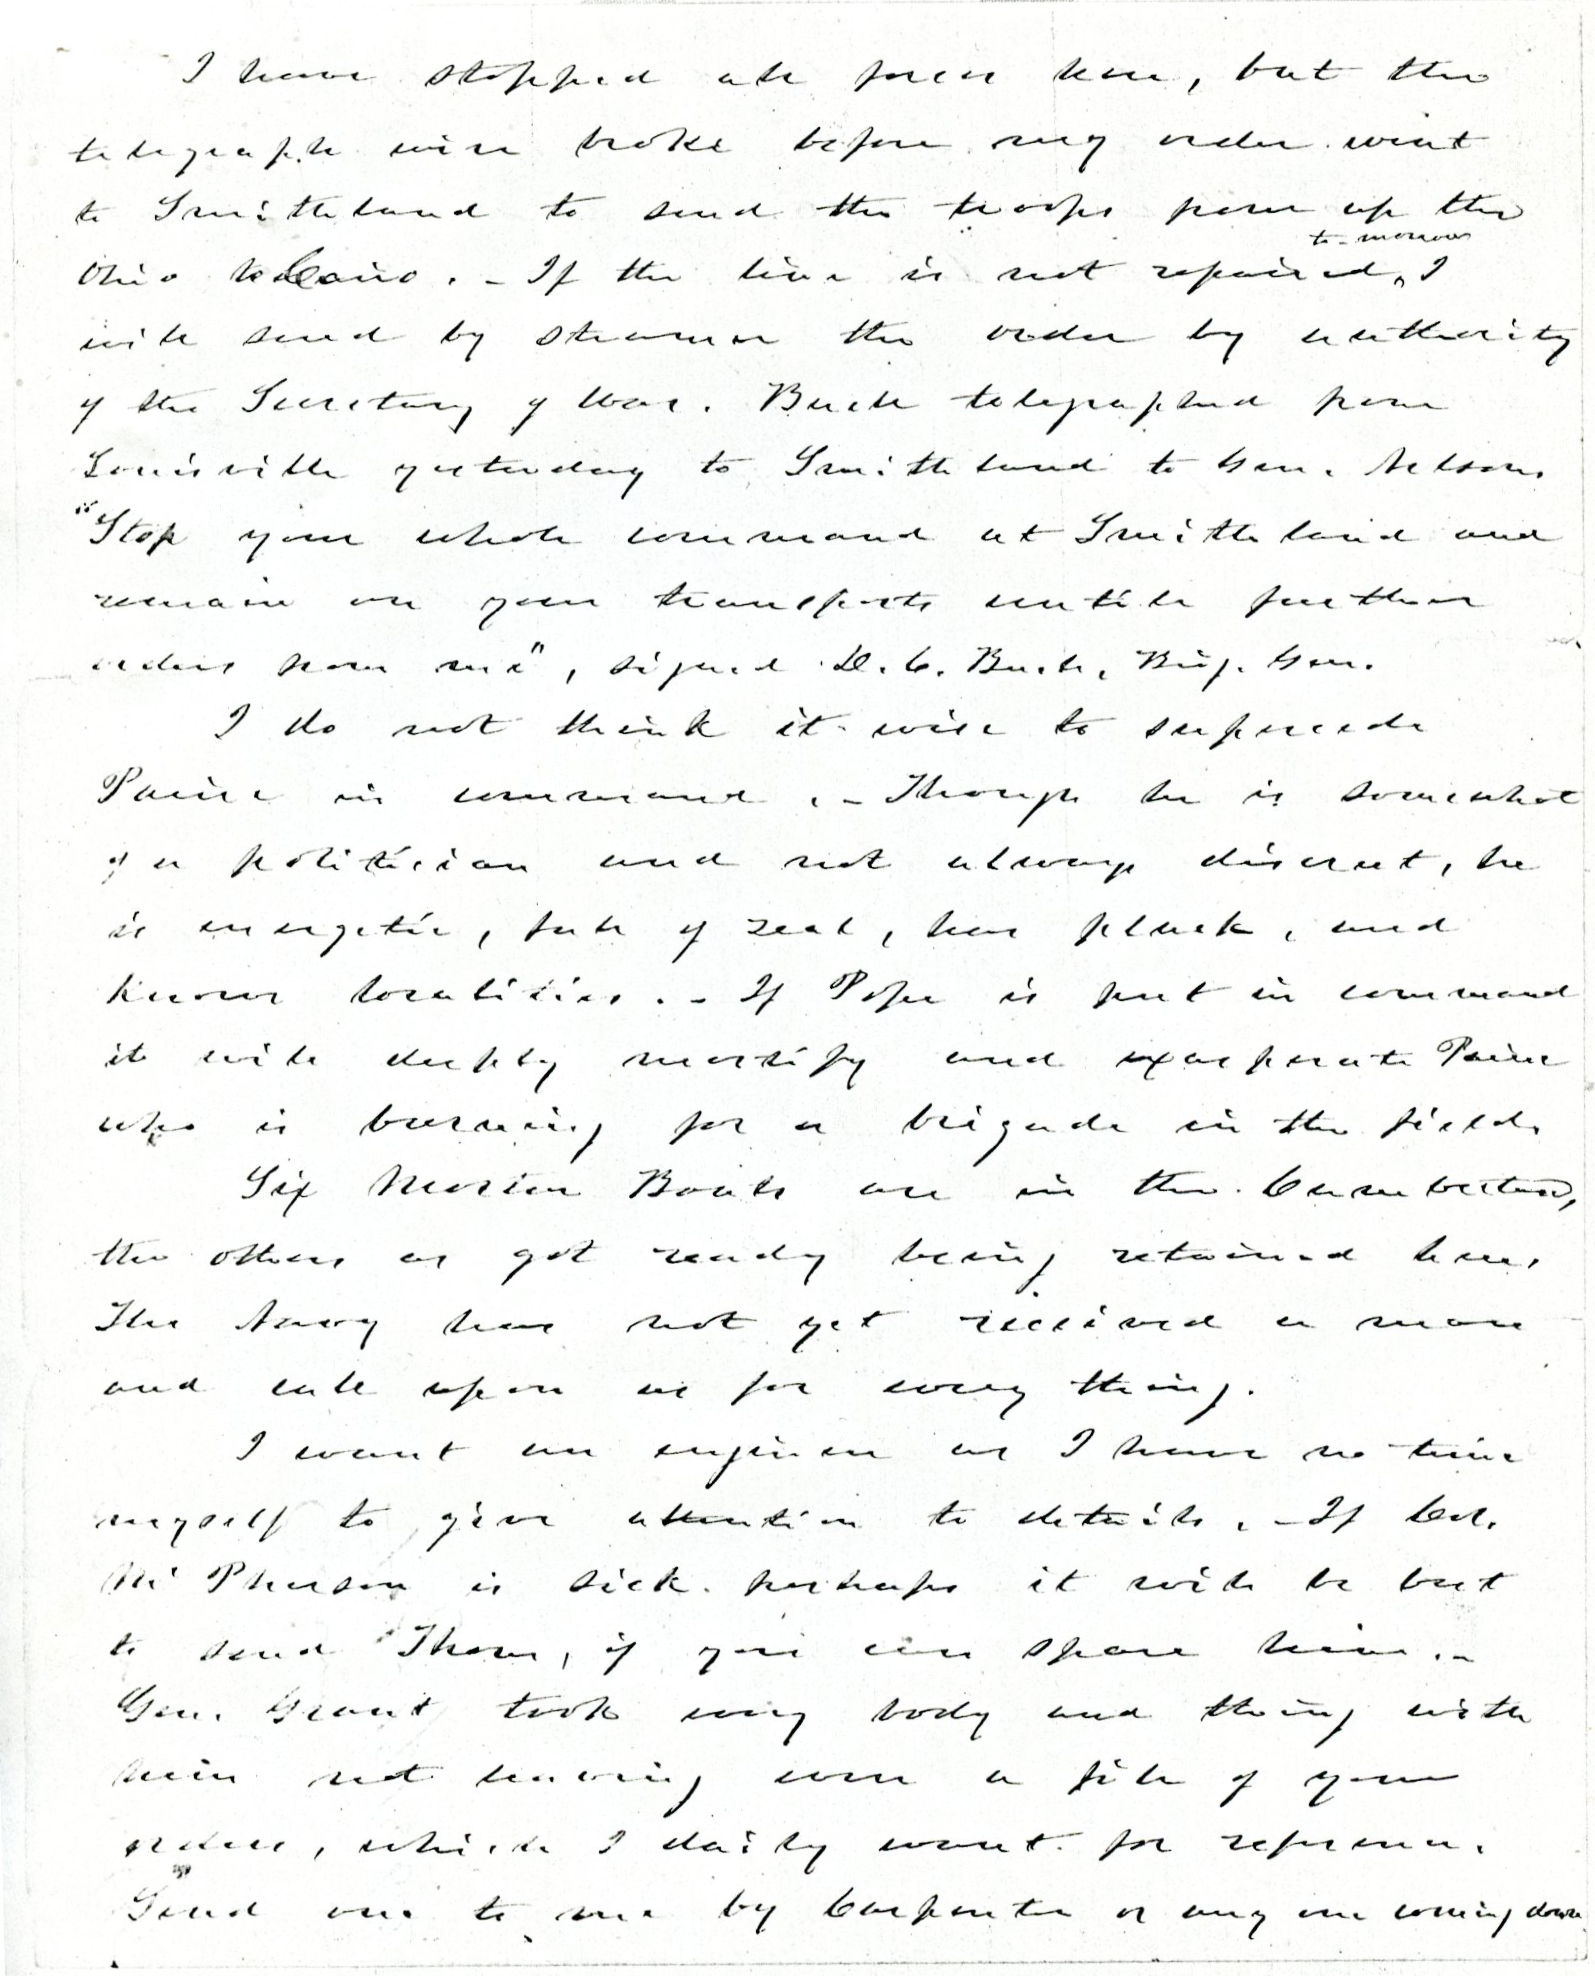 I have stopped all force here, but the
telegraph wire broke before my order went
to Smithland to send the troops from up the
to-morrow
Ohio to Cairo. - If the line is not repaired, I
will send by steamer the order by authority
of the Secretary of War. Buell telegraphed from
Louisville yesterday to Smithland to Gen. Nelson.
"Stop your whole command at Smithland and
remain on your transports until further
orders from me", signed D. C. Buell, Brig. Gen.
I do not think it wise to supercede
Paine in command. - Though he is somewhat
of a politician and not always discreet, he
is energetic, full of zeal, has pluck, and
knows localities. - If Pope is put in command
it will deeply mortify and exasperate Paine
who is burning for a brigade in the field.
Six Mortar Boats are in the Cumberland,
the others as got ready being retained here.
The Navy has not yet received a man
and call upon us for every thing.
I want an engineer as I have no time
myself to give attention to details. - If Col.
McPherson is sick perhaps it will be best
to send Thom, if you can spare him. -
Gen. Grant took every body and thing with
him not leaving even a file of your
orders, which I daily want for reference.
Send one to me by Carpenter or any one coming down